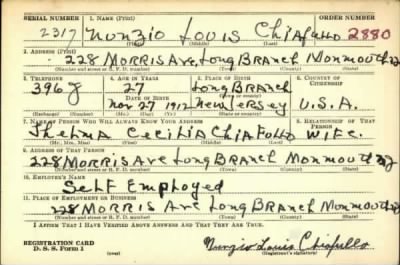 SERIAL NUMBER 1. NAME (Print) ORDER NUMBER
2317 Nunzio Louis Chiafullo 2880
(First) (Middle) (Last)
2. ADDRESS (Print)
228 Morris Ave, Long Branch Monmouth NJ
(Number and street or R. F. D. number) (Town) (County) (State)
3. TELEPHONE 4. AGE IN YEARS 5. PLACE OF BIRTH 6. COUNTRY OF CITIZENSHIP
396 J 27 Long Branch
DATE OF BIRTH (Town or county)
Nov 27 1912 New Jersey U.S.A.
(Exchange) (Number) (Mo.) (Day) (Yr.) (State or country)
7. NAME OF PERSON WHO WILL ALWAYS KNOW YOUR ADDRESS 8. RELATIONSHIP OF THAT PERSON
Thelma Cecilia Chiafullo Wife
(Mr., Mrs., Miss) (First) (Middle) (Last)
9. ADDRESS OF THAT PERSON
228 Morris Ave Long Branch Monmouth NJ
(Number and street or R. F. D. number) (Town) (County) (State)
10. EMPLOYER'S NAME
Self Employed
11. PLACE OF EMPLOYMENT OR BUSINESS
228 Morris Ave Long Branch Monmouth NJ
(Number and street or R. F. D. number) (Town) (County) (State)
I AFFIRM THAT I HAVE VERIFIED ABOVE ANSWERS AND THAT THEY ARE TRUE.
REGISTRATION CARD
D. S. S. Form 1 (over) Nunzio Louis Chiafullo
(Registrant's signature)